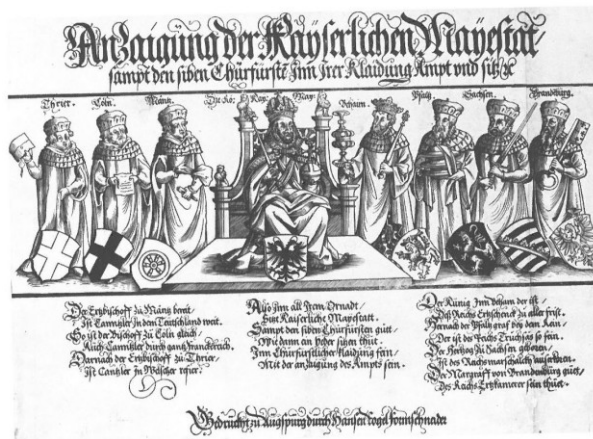 Anzaigung der Kayserlichen Mayestat/
sampt den siben Churfürstē Inn Irer Klaidung Ampt vnd sitz ꝛc
Thrier. Cöln. Mäntz. Die Rö: Kay: May: Behaim. Pfaltz. Sachsen. Brandburg.
Der Ertzbischoff zu Mäntz bereit/
Ist Cantzler In dem Teutschland weit.
So ist der Bischoff zu Cöln gleich/
Auch Cantzler durch gantz franckreich.
Darnach der Ertzbischoff zu Thrier/
Ist Cantzler In Welscher refier.
Also Inn all Irem Ornadt/
Sitzt Kaiserliche Mayestatt.
Sampt den siben Churfürsten gut/
Wie dann ein yeder sitzen thut.
Inn Churfürstlicher klaidung fein/
Mit der anzaigung des Ampts sein.
Der Künig Inn Beham der ist/
Des Reichs Ertzschenck zu aller frist.
Hernach der Pfaltzgraf bey dem Rein/
Der ist des Reichs Truchsas so fein.
Der Hertzog zu Sachsen geboren/
Ist des Reichs marschalch außerkoren.
Der Margraff von Brandenburg gut/
Des Reichs Ertzkamerer sein thut.
Gedruckt zu Augspurg durch Hansen Vogel formschneider